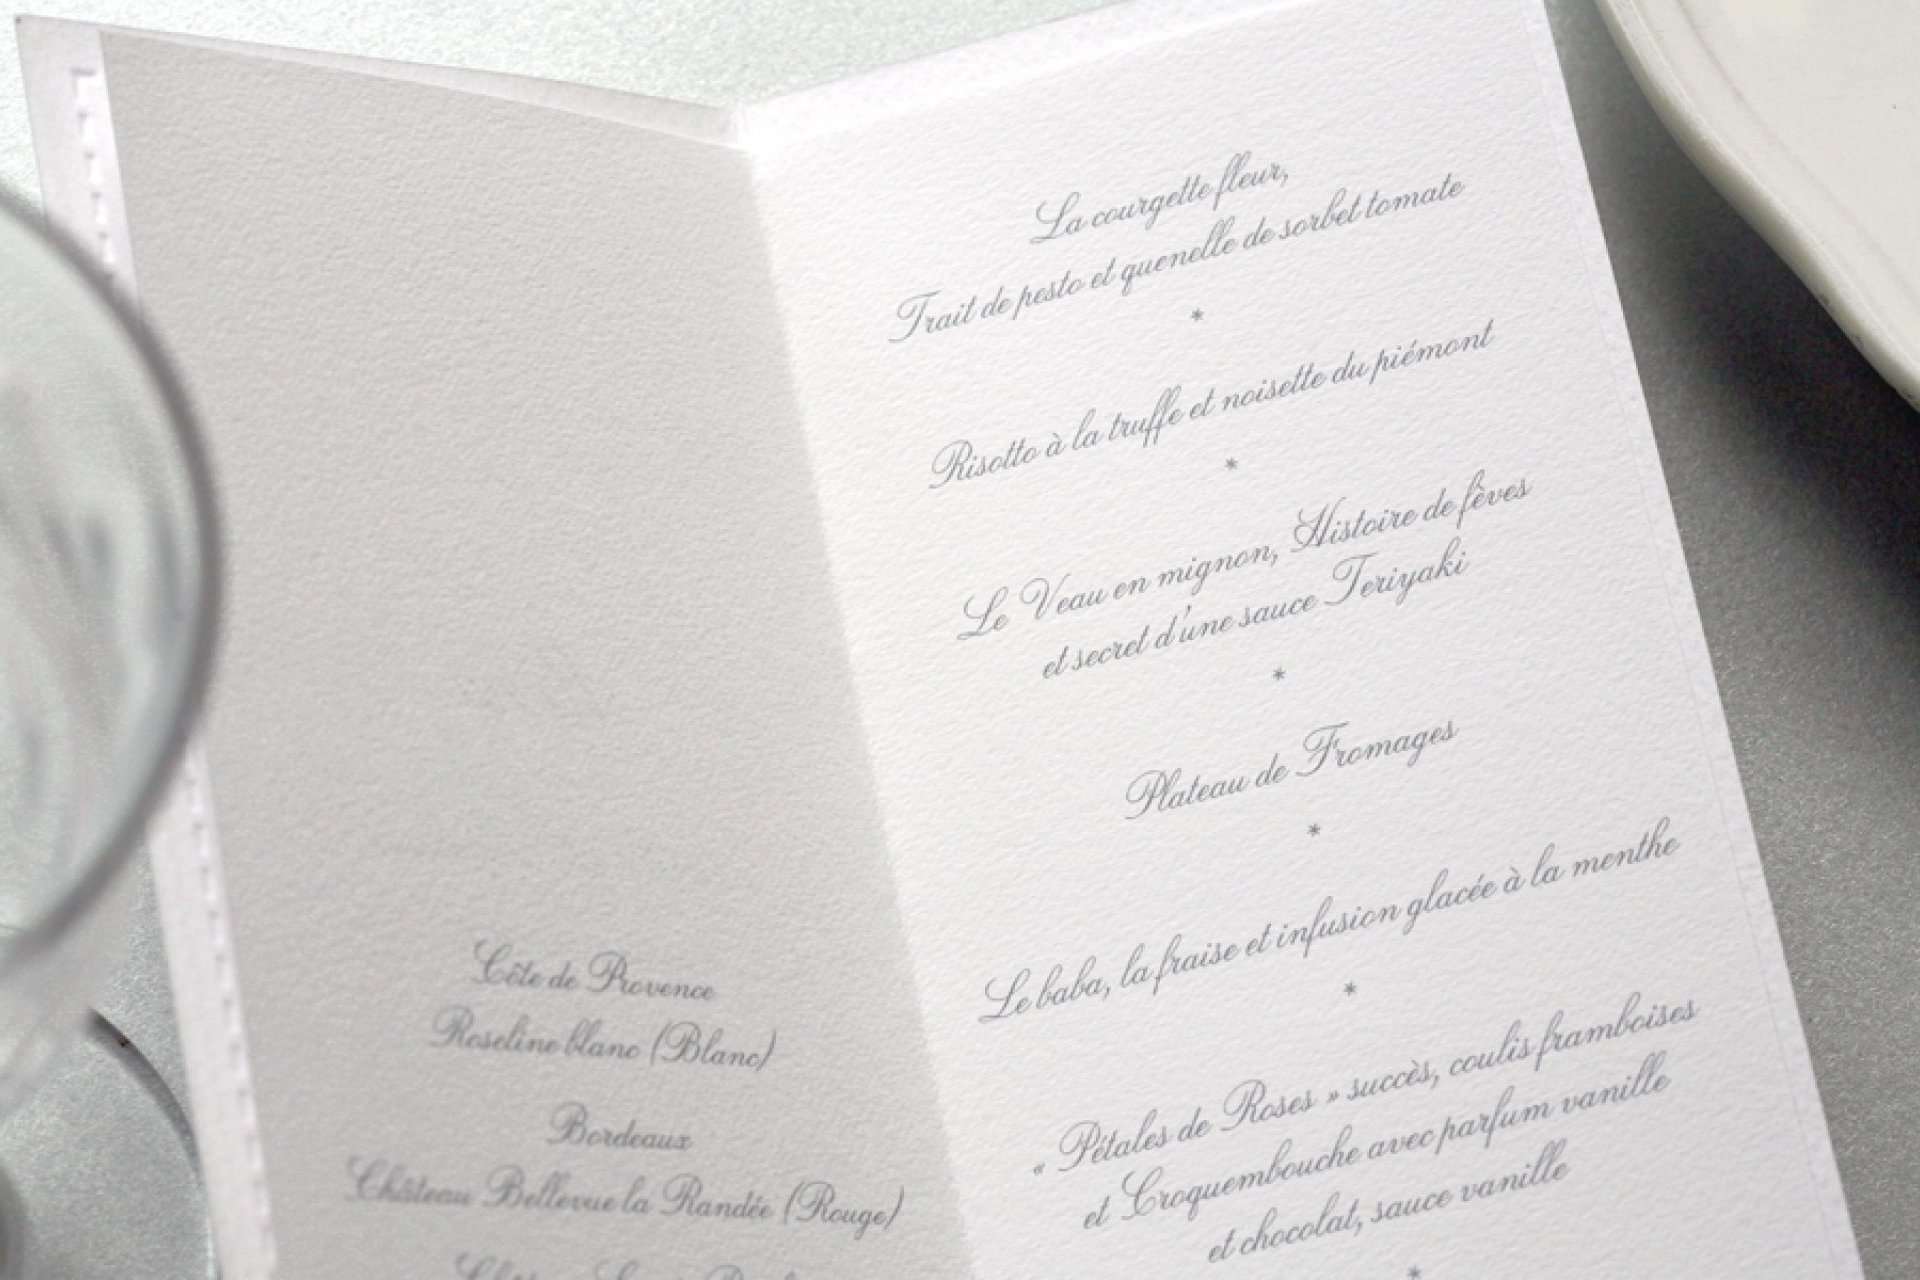 Côte de Provence
Roseline blanc (Blanc)
Bordeaux
Château Bellevue la Randée (Rouge)
La courgette fleur,
Trait de pesto et quenelle de sorbet tomate
*
Risotto à la truffe et noisette du piémont
*
Le Veau en mignon, Histoire de fèves
et secret d'une sauce Teriyaki
*
Plateau de Fromages
*
Le baba, la fraise et infusion glacée à la menthe
*
« Pétales de Roses » succès, coulis framboises
et Croquembouche avec parfum vanille
et chocolat, sauce vanille
*